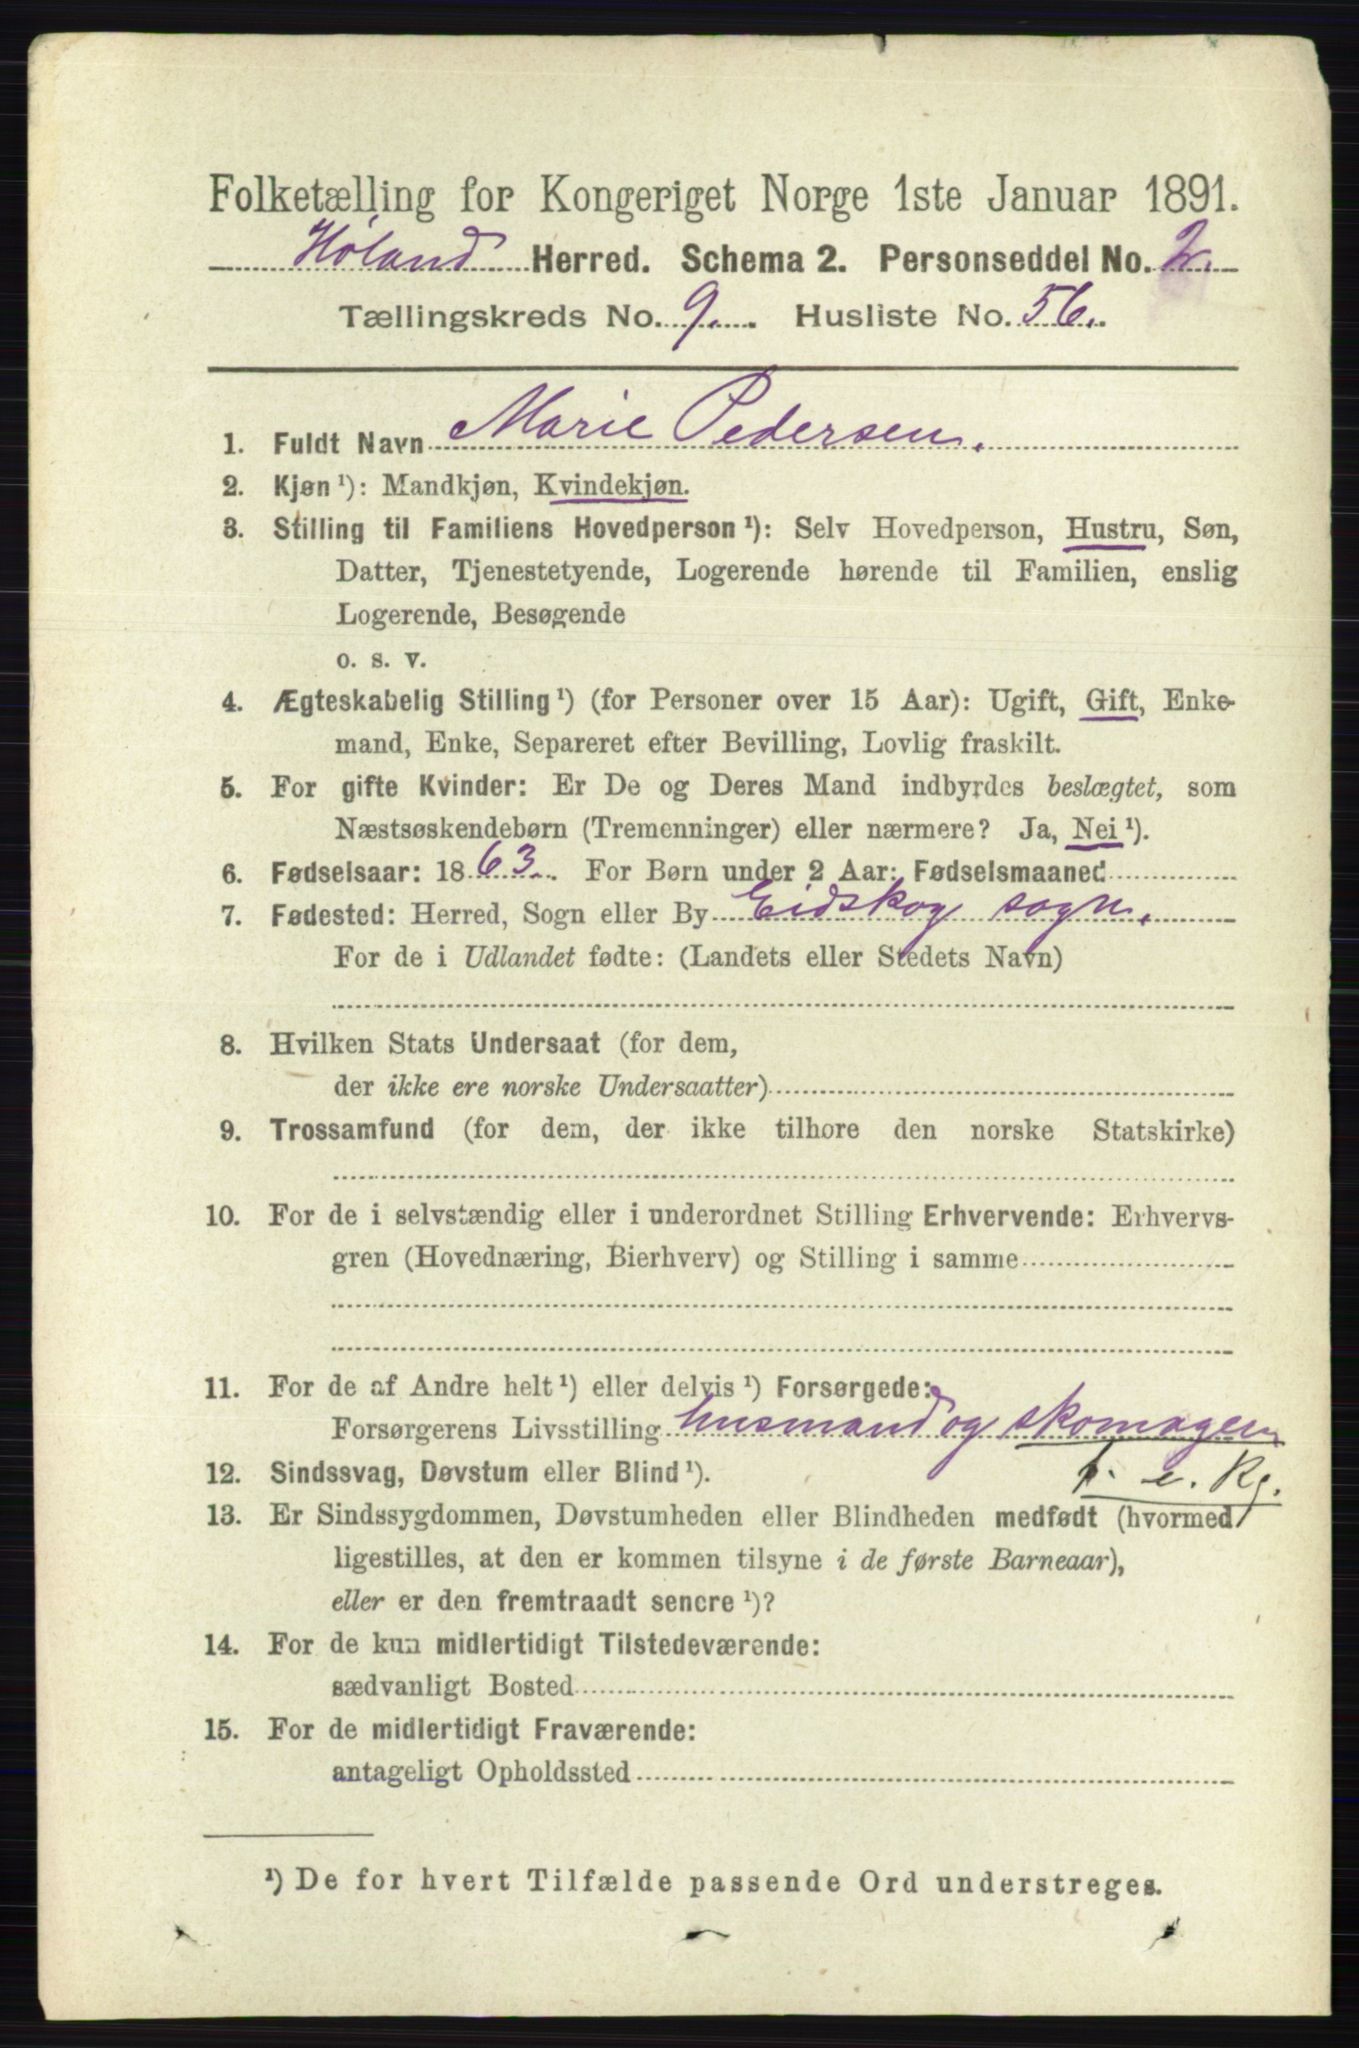 Folketælling for Kongeriget Norge 1ste Januar 1891.
Høland Herred. Schema 2. Personseddel No. 2.
Tællingskreds No. 9. Husliste No. 56.
1. Fuldt Navn Marie Pedersen.
2. Kjøn ¹): Mandkjøn, Kvindekjøn.
3. Stilling til Familiens Hovedperson ¹): Selv Hovedperson, Hustru, Søn,
Datter, Tjenestetyende, Logerende hørende til Familien, enslig
Logerende, Besøgende
o. s. v.
4. Ægteskabelig Stilling ¹) (for Personer over 15 Aar): Ugift, Gift, Enke-
mand, Enke, Separeret efter Bevilling, Lovlig fraskilt.
5. For gifte Kvinder: Er De og Deres Mand indbyrdes beslægtet, som
Næstsøskendebørn (Tremenninger) eller nærmere? Ja, Nei ¹).
6. Fødselsaar: 1863. For Børn under 2 Aar: Fødselsmaaned
7. Fødested: Herred, Sogn eller By Eidskog sogn.
For de i Udlandet fødte: (Landets eller Stedets Navn)
8. Hvilken Stats Undersaat (for dem,
der ikke ere norske Undersaatter)
9. Trossamfund (for dem, der ikke tilhøre den norske Statskirke)
10. For de i selvstændig eller i underordnet Stilling Erhvervende: Erhvervs-
gren (Hovednæring, Bierhverv) og Stilling i samme
11. For de af Andre helt ¹) eller delvis ¹) Forsørgede:
Forsørgerens Livsstilling husmand og skomager
12. Sindssvag, Døvstum eller Blind ¹). f. e. Rg.
13. Er Sindssygdommen, Døvstumheden eller Blindheden medfødt (hvormed
ligestilles, at den er kommen tilsyne i de første Barneaar),
eller er den fremtraadt senere ¹)?
14. For de kun midlertidigt Tilstedeværende:
sædvanligt Bosted
15. For de midlertidigt Fraværende:
antageligt Opholdssted
¹) De for hvert Tilfælde passende Ord understreges.